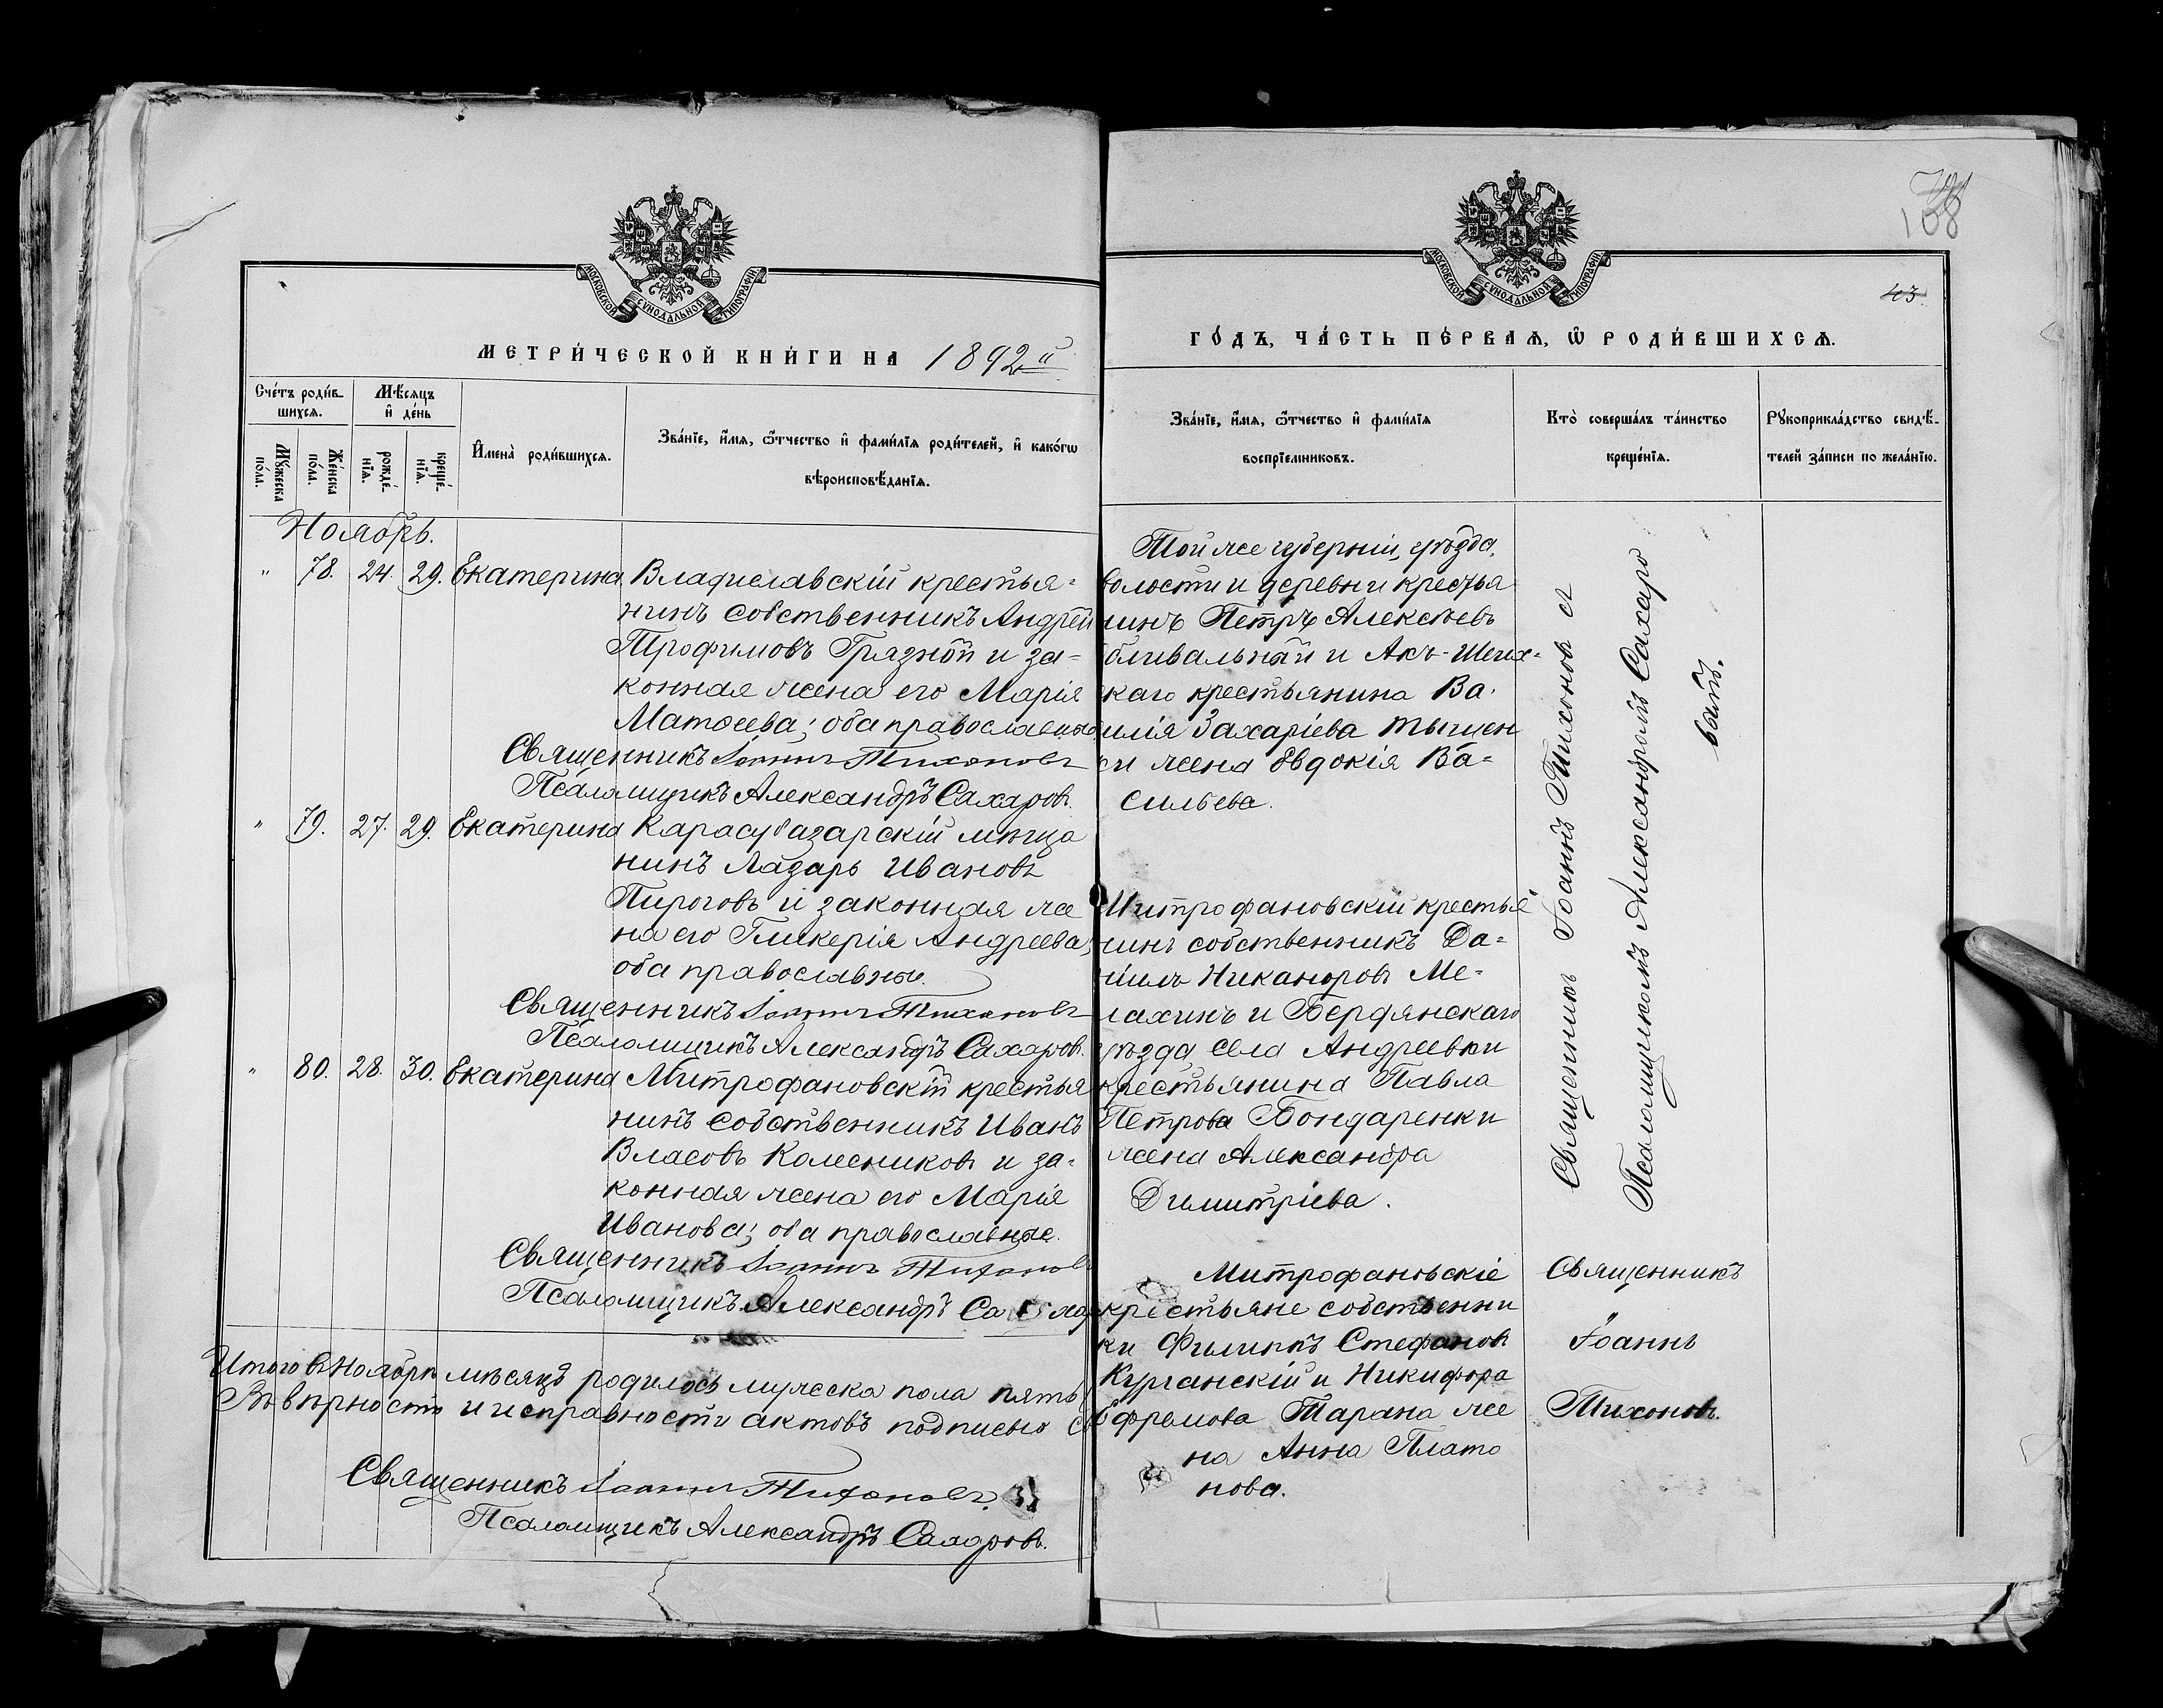 МОСКОВСКОЙ СУНОДАЛЬНОЙ ТИПОГРАФІИ
МЕТРИ́ЧЕСКОЙ КНИ́ГИ НА 1892й
Сче́тъ роди́в-
шихсѧ.
Мѣ́сѧцъ
и҆ де́нь
Мꙋ́жеска
по́ла.
Же́нска
по́ла.
рожде́-
нїѧ.
креще́-
нїѧ.
И҆мена̀ роди́вшихсѧ.
Зва́нїе, и҆́мѧ, ѻ҆́тчество и҆ фами́лїѧ роди́телей, и҆ како́гѡ
вѣроисповѣ́данїѧ.
Ноябрь.
" 78. 24. 29. Екатерина Владиславскій крестья-
нинъ собственникъ Андрей
Трофимовъ Грязной и за-
конная жена его Марія
Матѳеева; оба православные.
Священникъ Іоаннъ Тихоновъ
Псаломщикъ Александръ Сахаровъ.
" 79. 27. 29. Екатерина Карасубазарскій мѣща
нинъ Лазарь Ивановъ
Пироговъ и законная же
на его Гликерія Андреева;
оба православные.
Священникъ Іоаннъ Тихоновъ
Псаломщикъ Александръ Сахаровъ.
" 80. 28. 30. Екатерина Митрофановскій крестья
нинъ собственникъ Иванъ
Власовъ Колесниковъ и за-
конная жена его Марія
Иванова; оба православные.
Священникъ Іоаннъ Тихоновъ
Псаломщикъ Александръ
Итого въ Ноябрѣ мѣсяцѣ родилось мужеска пола пять
вѣрности и исправности актовъ подписью
Священникъ Іоаннъ Тихоновъ.
Псаломщикъ Александръ Сахаровъ.
43
МОСКОВСКОЙ СУНОДАЛЬНОЙ ТИПОГРАФІИ
ГО́ДЪ, ЧА́СТЬ ПЕ́РВАѦ, Ѡ҆ РОДИ́ВШИХСѦ.
Зва́нїе, и҆́мѧ, ѻ҆́тчество и҆ фами́лїѧ
воспрїе́мниковъ.
Кто̀ соверша́лъ та́инство
креще́нїѧ.
Рꙋкоприкла́дство свидѣ́-
телей за́писи по жела́нїю.
Той же губерніи, уѣзда,
волости и деревни крестья
нинъ Петръ Алексѣевъ
и Акъ-Шеих-
скаго крестьянина Ва-
силія Захаріева Тыщен
ки жена Евдокія Ва-
сильева.
Митрофановскій крестья
нинъ собственникъ Да-
ніилъ Никаноровъ Ме-
лахинъ и Бердянскаго
уѣзда села Андреевки
крестьянина Павла
Петрова Бондаренки
жена Александра
Димитріева.
Священникъ Іоаннъ Тихоновъ съ
Псаломщикомъ Александромъ Сахаро
вымъ.
Митрофановскіе
крестьяне собственни
ки Филиппъ Стефановъ
Курганскій и Никифора
Ефремова Тарана же
на Анна Плато
нова.
Священникъ
Іоаннъ
Тихоновъ.